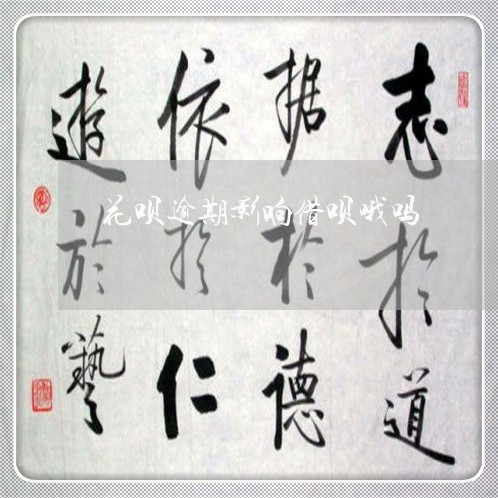 志於道
据於德
依於仁
遊於藝
花呗逾期影响借呗哦吗